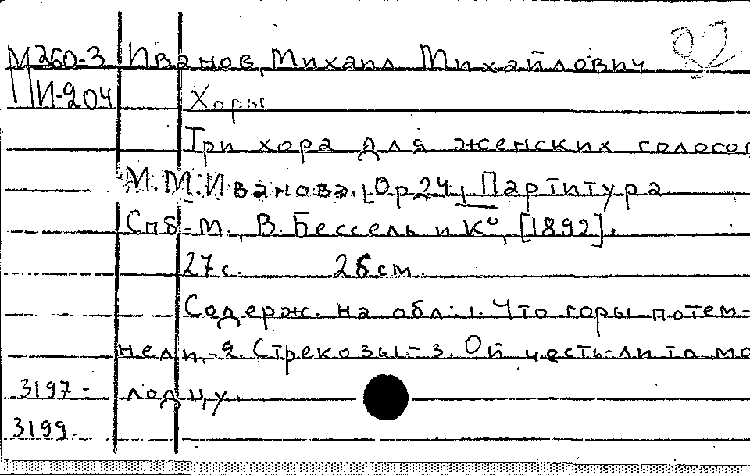 М260-3 Иванов, Михаил Михайлович
И-204 Хоры
Три хора для женских голосов
М.М.Иванова. [Op.24] Партитура
Спб.-М., В. Бессель и К°, [1892].
27с. 26см.
Содерж. на обл.: 1. Что горы потем-
нели.- 2. Стрекозы.- 3. Ой честь-ли то мо-
3197- лодцу.
3199.